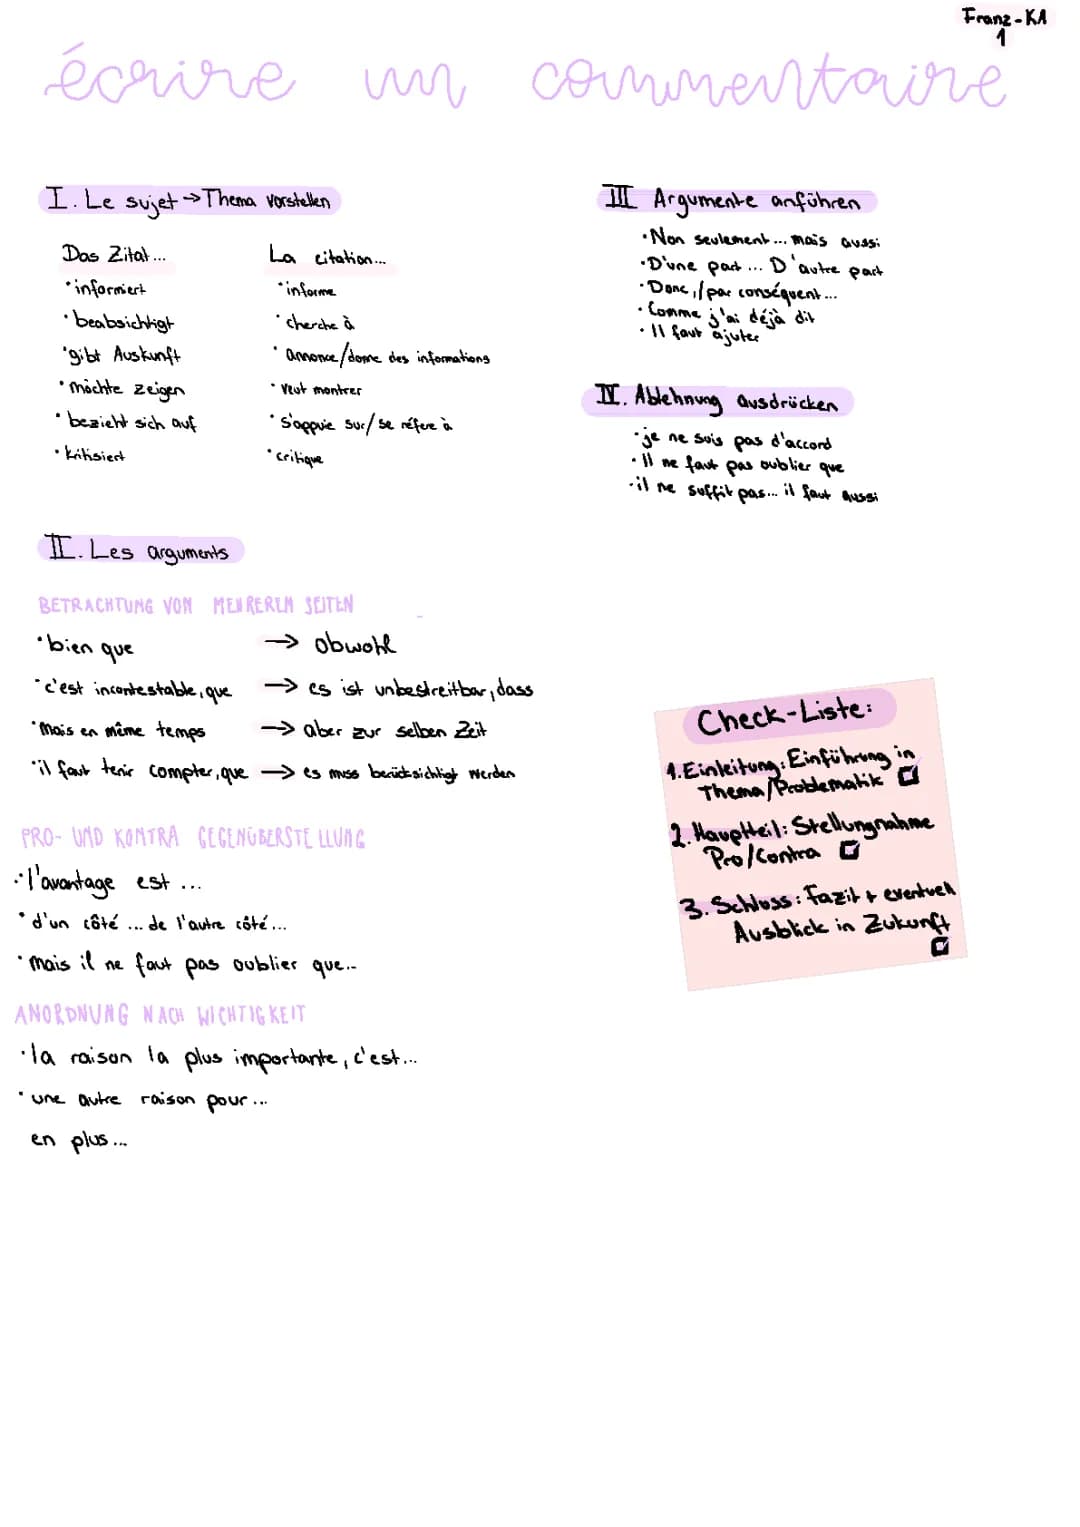 Franz-KA
1
écrire un commentaire
I. Le sujet → Thema vorstellen
Das Zitat...
• informiert
• beabsichtigt
• gibt Auskunft
• möchte zeigen
• bezieht sich auf
• kritisiert
La citation...
• informe
• cherche à
• annonce/donne des informations
• veut montrer
• s'appuie sur/se réfere à
• critique
II. Les arguments
BETRACHTUNG VON MEHREREN SEITEN
• bien que → obwohl
• c'est incontestable, que → es ist unbestreitbar, dass
• Mais en même temps → aber zur selben Zeit
• il faut tenir compter, que → es muss berücksichtigt werden
PRO- UND KONTRA GEGENÜBERSTELLUNG
• l'avantage est ...
• d'un côté ... de l'autre côté...
• Mais il ne faut pas oublier que...
ANORDNUNG NACH WICHTIGKEIT
• la raison la plus importante, c'est...
• une autre raison pour...
en plus...
III Argumente anführen
• Non seulement ... mais aussi
• D'une part ... D'autre part
• Donc,/par conséquent...
• Comme j'ai déjà dit
• Il faut ajuter
IV. Ablehnung ausdrücken
• je ne suis pas d'accord
• Il ne faut pas oublier que
• il ne suffit pas... il faut aussi
Check-Liste:
1. Einleitung: Einführung in
Thema/Problematik
2. Hauptteil: Stellungnahme
Pro/Contra
3. Schluss: Fazit + eventuell
Ausblick in Zukunft